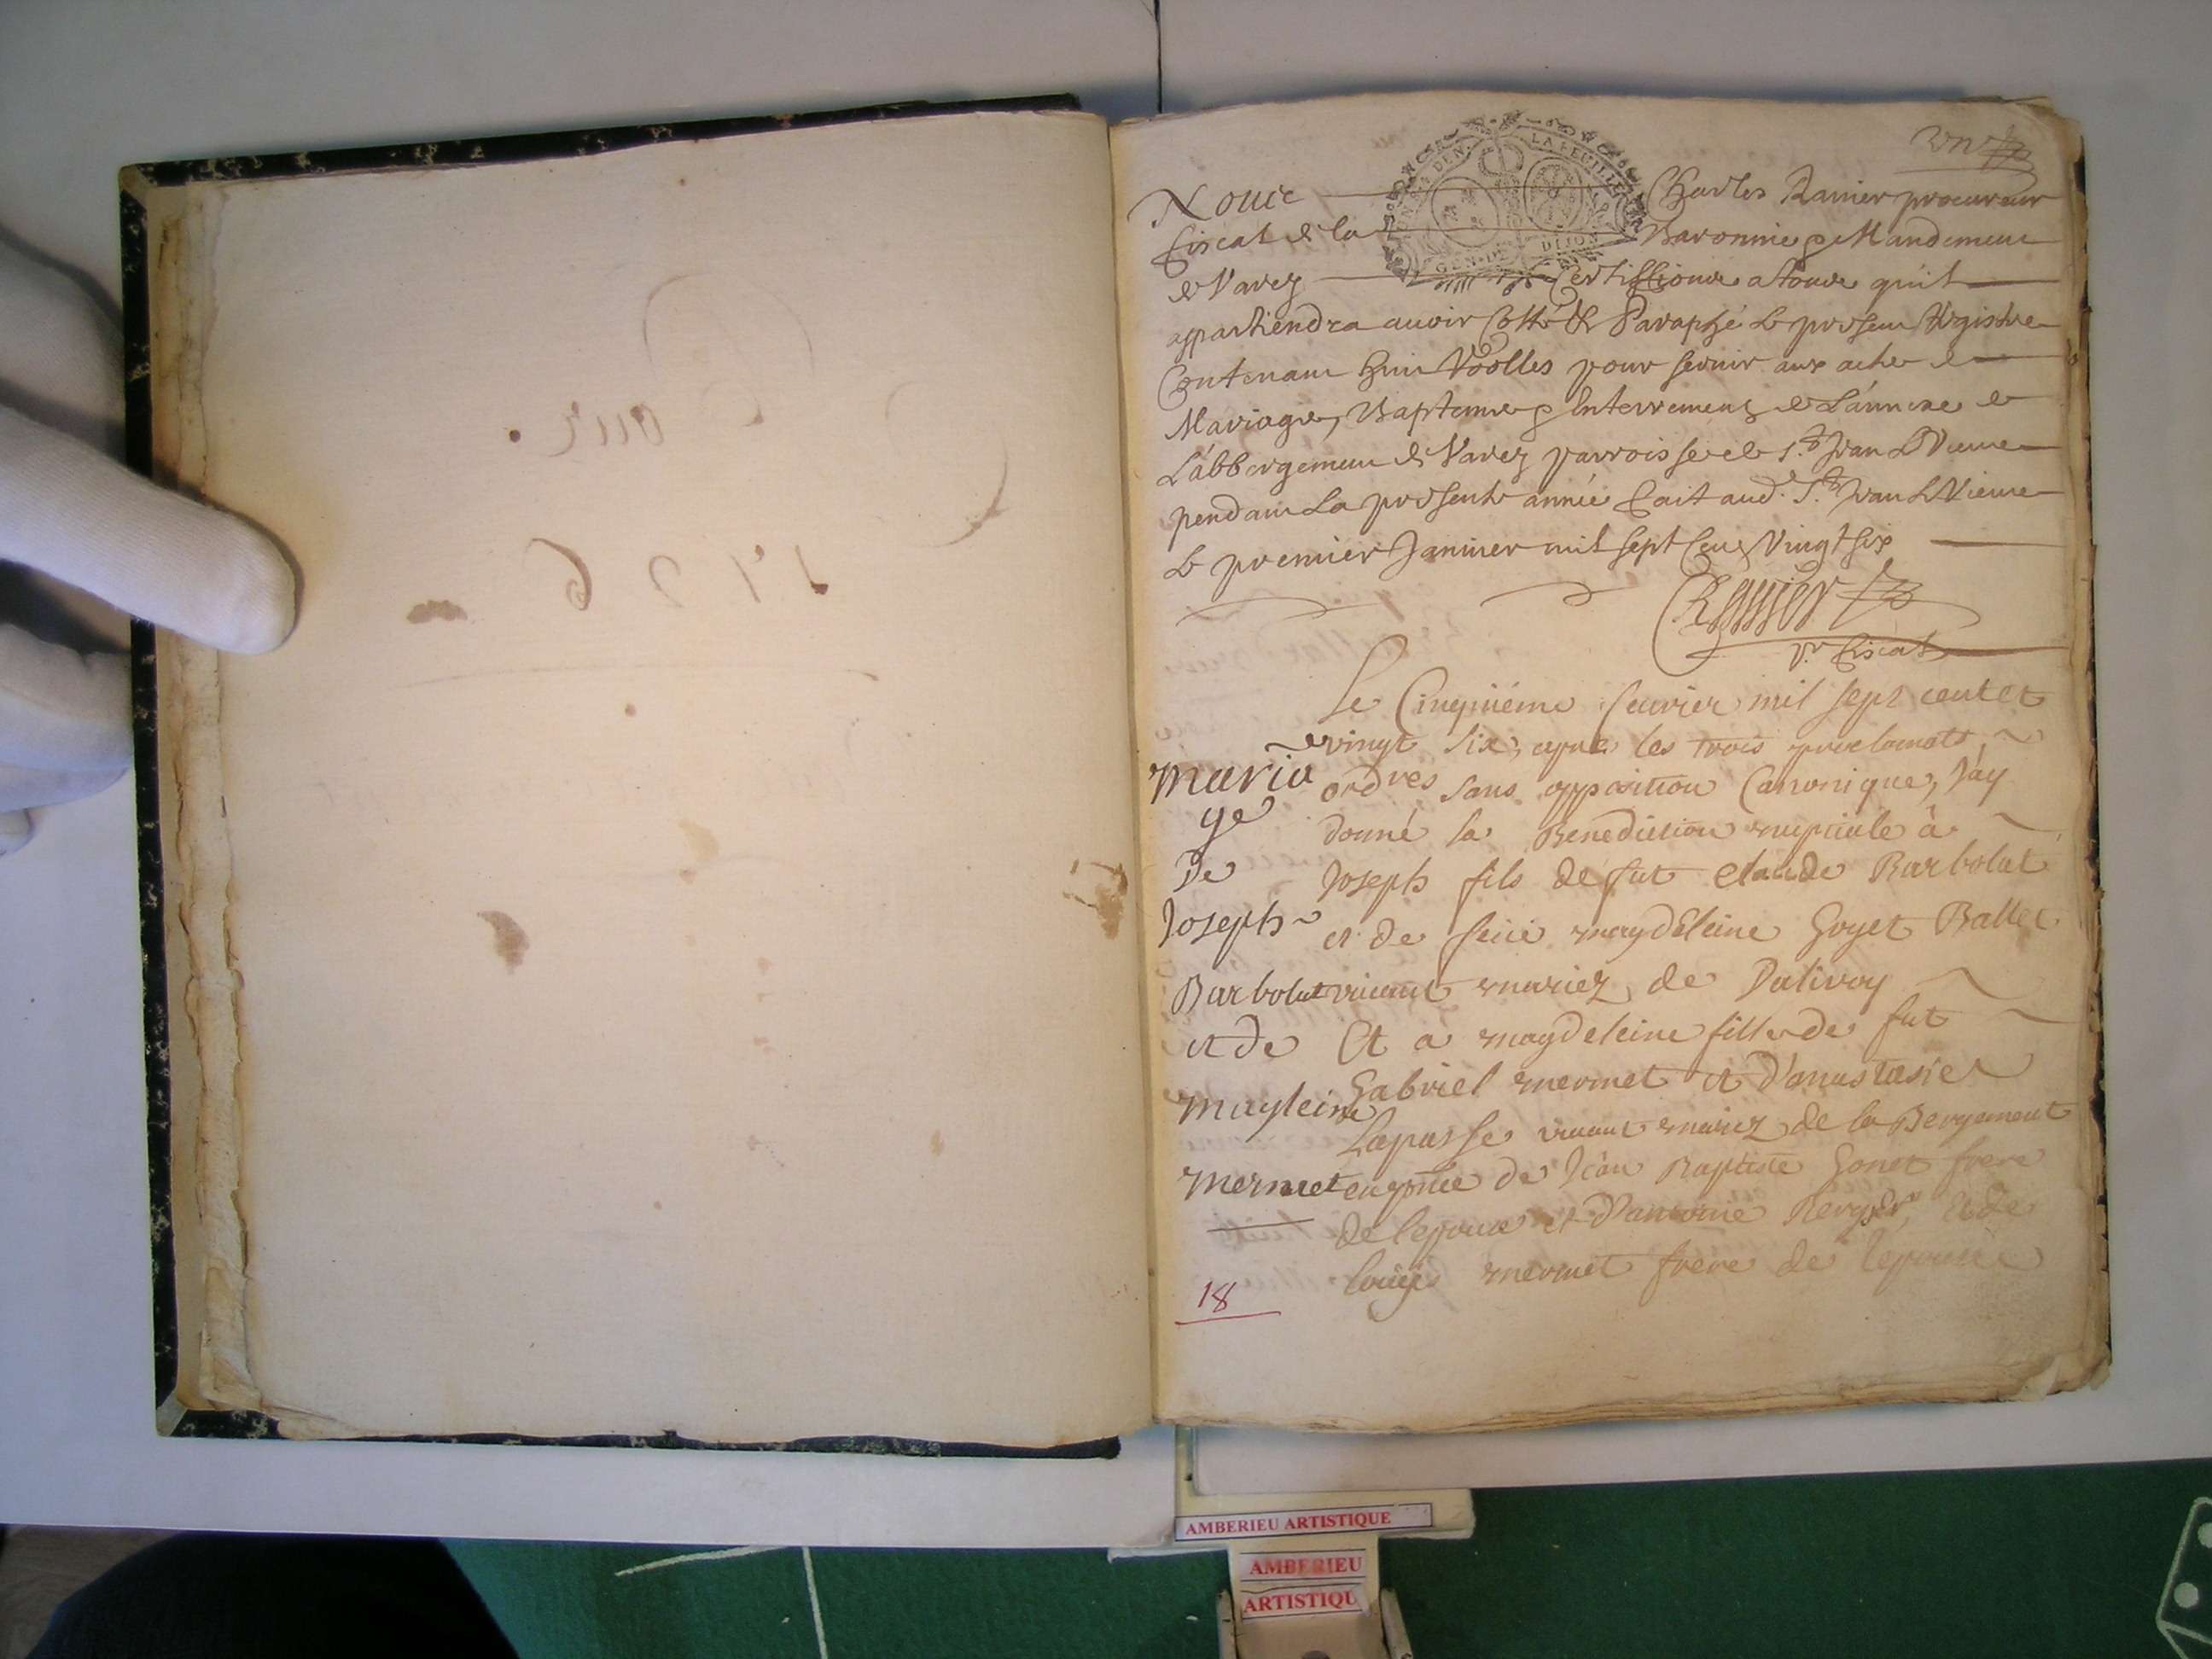 Pour
1726
un
Nous Charles Ranier procureur
fiscal de la Baronnie & Mandement
de Varey Certiffions a toux qu'il
appartiendra avoir Cotté & Paraphé le present Registre
Contenant huit Roolles pour servir aux actes de
Mariage, Baptemes & Enterremens de L'annexe de
L'abbergement de Varey parroisse de St. Jean Le Vieux
pendant La presente année fait aud. St. Jean Le Vieux
Le premier Janvier mil sept Cens Vingt six
Ranier
pr. fiscal
Le Cinquiéme feuvrier mil sept cent et
vingt six, apres les trois proclamats
ordres sans opposition Canonique, J'ay
donné la Benediction nuptiale à
Joseph fils de fut Claude Barbolat
et de feüe magdeleine Goyet Ballet
vivant mariez de Dalivoy
Et a magdeleine fille de fut
Gabriel mermet et d'anastasie
Lapasse vivant mariez de la Bergement
en pnce de Jean Baptiste Gonet frere
de lepoux et d'antoine Berger, et de
louys mermet frere de lepouse
Maria
ge
De
Joseph
Barbolat
et de
Magleine
Mermet
18
LA FEUILLE
GEN. DE DIJON
AMBERIEU ARTISTIQUE
AMBERIEU
ARTISTIQU